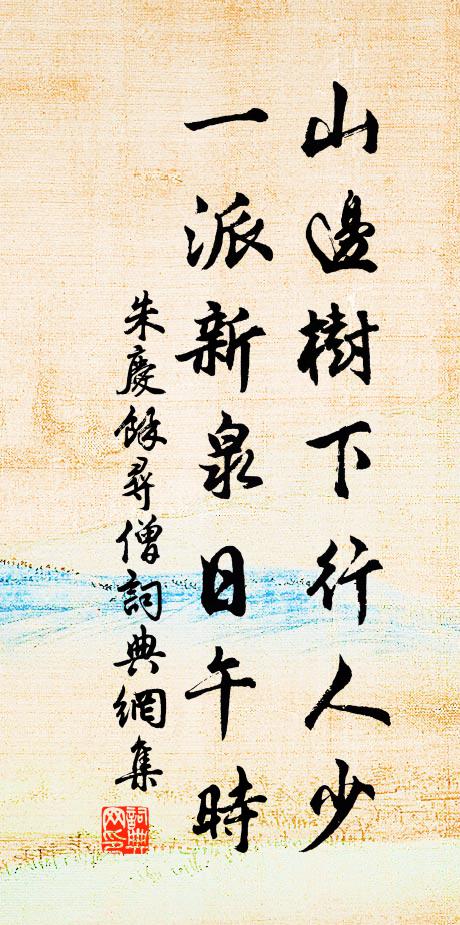 山邊樹下行人少
一派新泉日午時
朱慶餘尋僧詞典網集
詞典網印